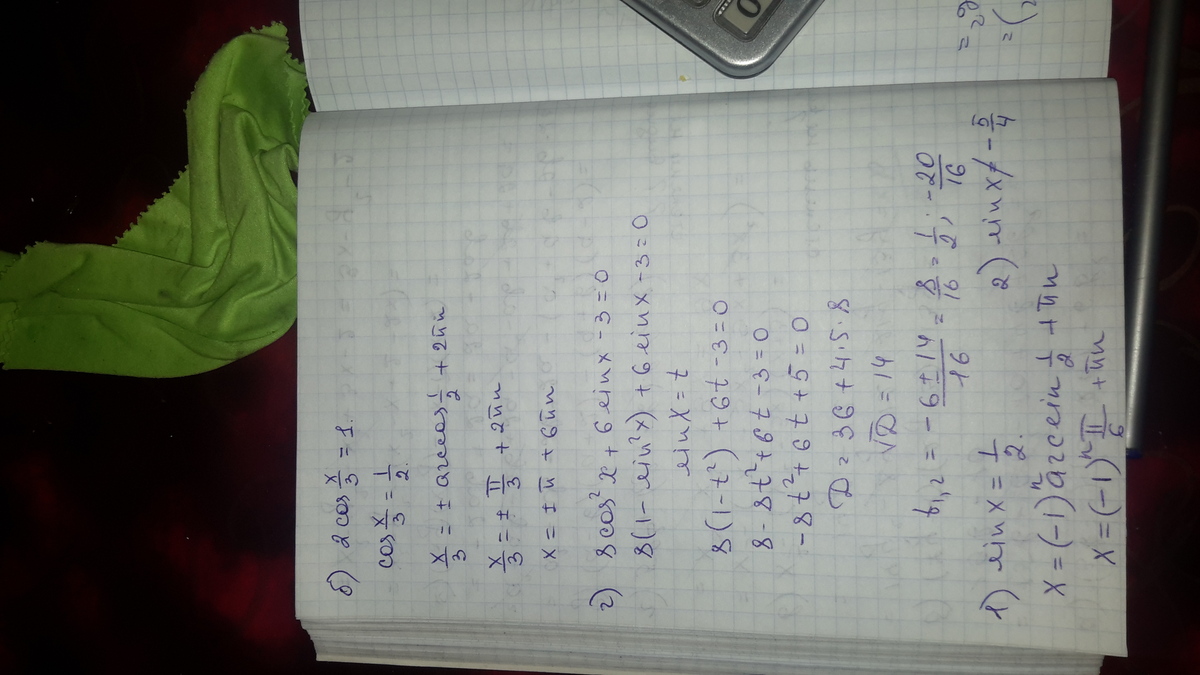 б) 2 cos x/3 = 1.
cos x/3 = 1/2.
x/3 = ± arccos 1/2 + 2πn
x/3 = ± π/3 + 2πn
x = ± π + 6πn
г) 8 cos² x + 6 sin x − 3 = 0
8(1 − sin² x) + 6 sin x − 3 = 0
sin x = t
8(1 − t²) + 6t − 3 = 0
8 − 8t² + 6t − 3 = 0
−8t² + 6t + 5 = 0
D = 36 + 4·5·8
√D = 14
t₁,₂ = −6 ± 14/16 = 8/16 = 1/2; −20/16
1) sin x = 1/2.
2) sin x ≠ −5/4
x = (−1)ⁿ arcsin 1/2 + πn
x = (−1)ⁿ π/6 + πn
0